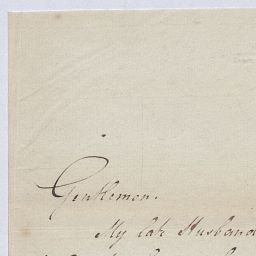 Gentlemen.
My late Husband